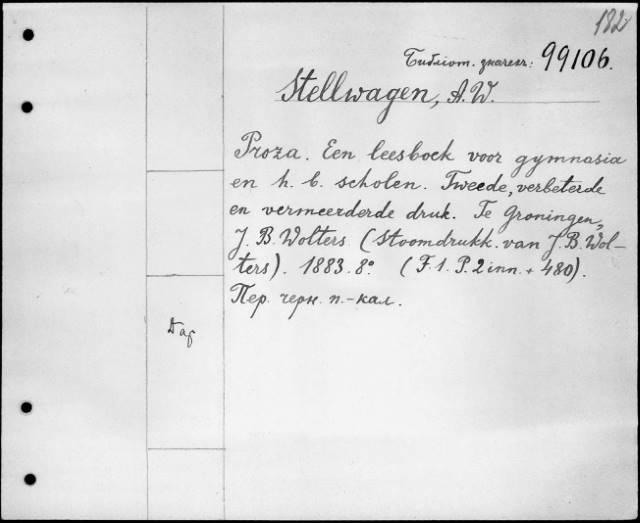 182
99106.
Stellwagen, A.W.
Proza. Een leesboek voor gymnasia
en h. b. scholen. Tweede, verbeterde
en vermeerderde druk. Te Groningen,
J. B. Wolters (Stoomdrukk. van J. B. Wol-
ters). 1883. 8º. (F. 1. P. 2 inn. + 480).
Пер. черн. п.-кал.
Дар